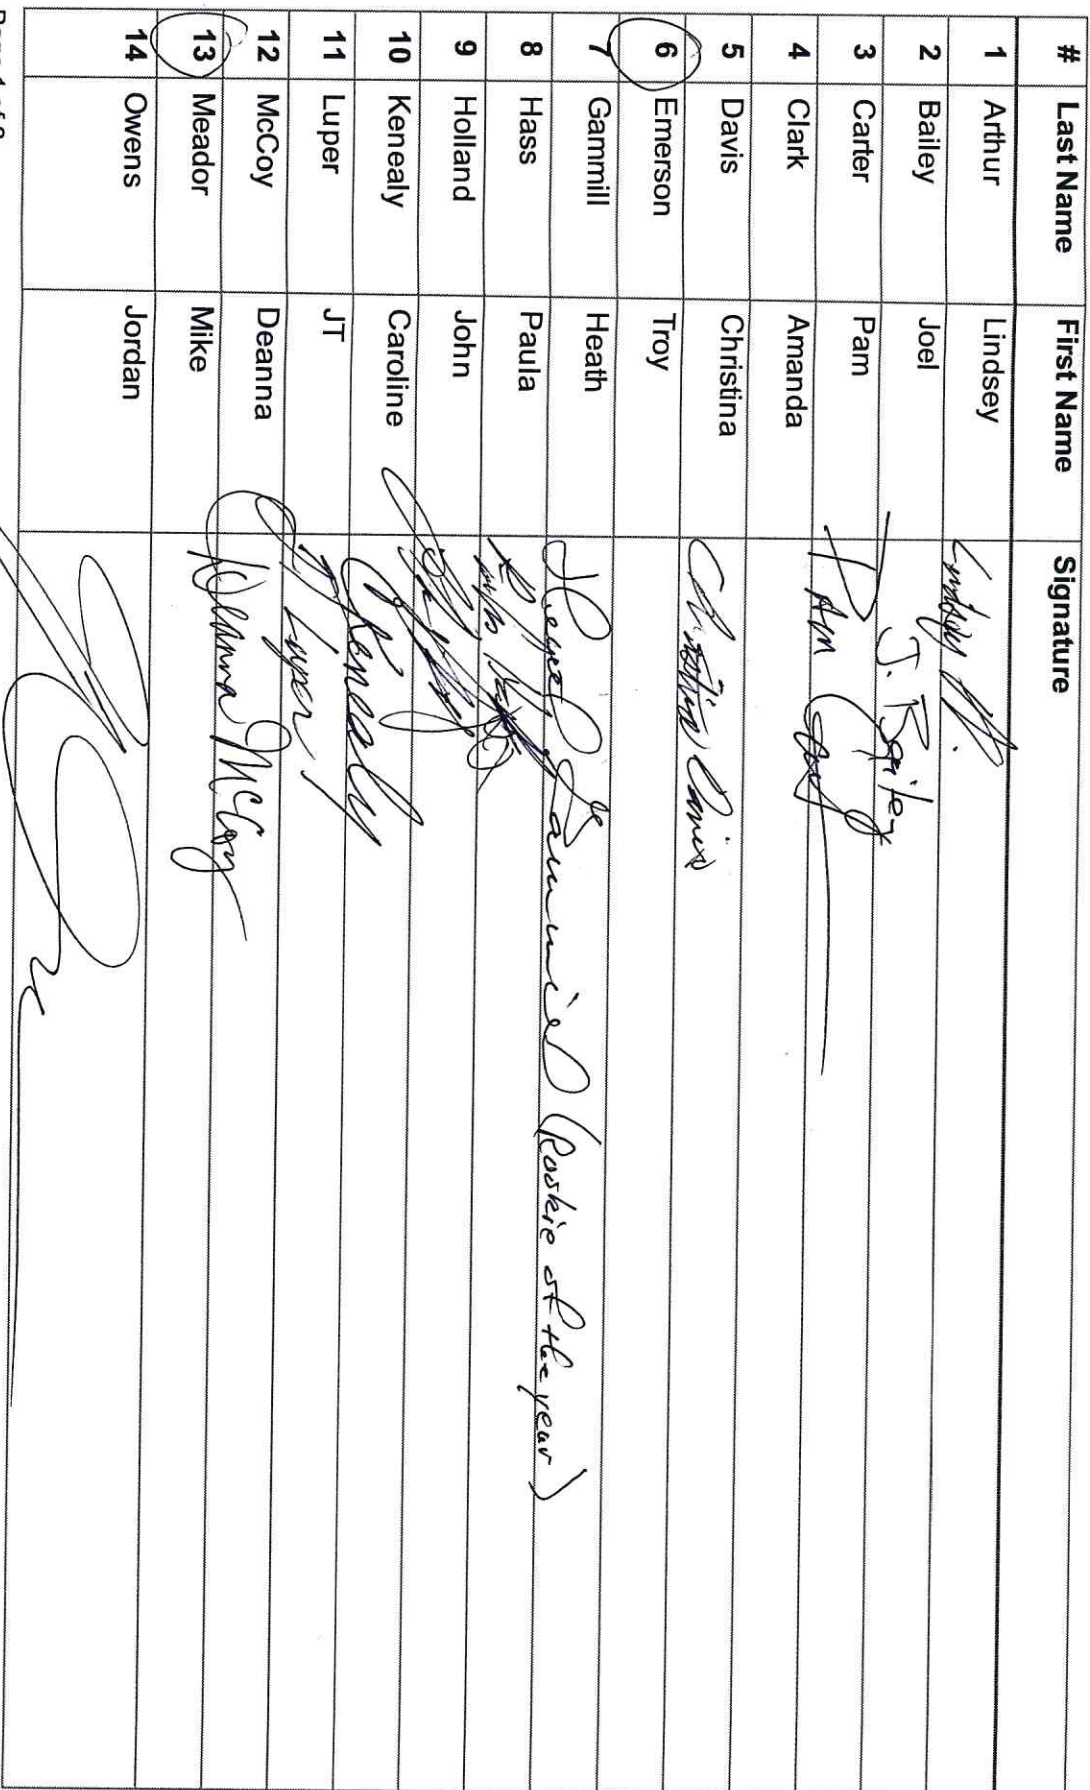 # Last Name First Name Signature
1 Arthur Lindsey
2 Bailey Joel J. Bailey
3 Carter Pam Pam
4 Clark Amanda
5 Davis Christina Christina Davis
6 Emerson Troy
7 Gammill Heath Gammill (Rookie of the year)
8 Hass Paula
9 Holland John
10 Kenealy Caroline Kenealy
11 Luper JT JT Luper
12 McCoy Deanna Deanna McCoy
13 Meador Mike
14 Owens Jordan